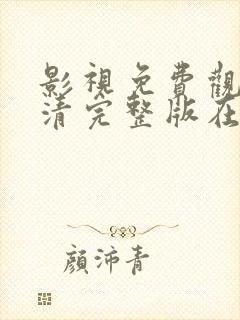 影視免費觀
清完整版在
顏沛青